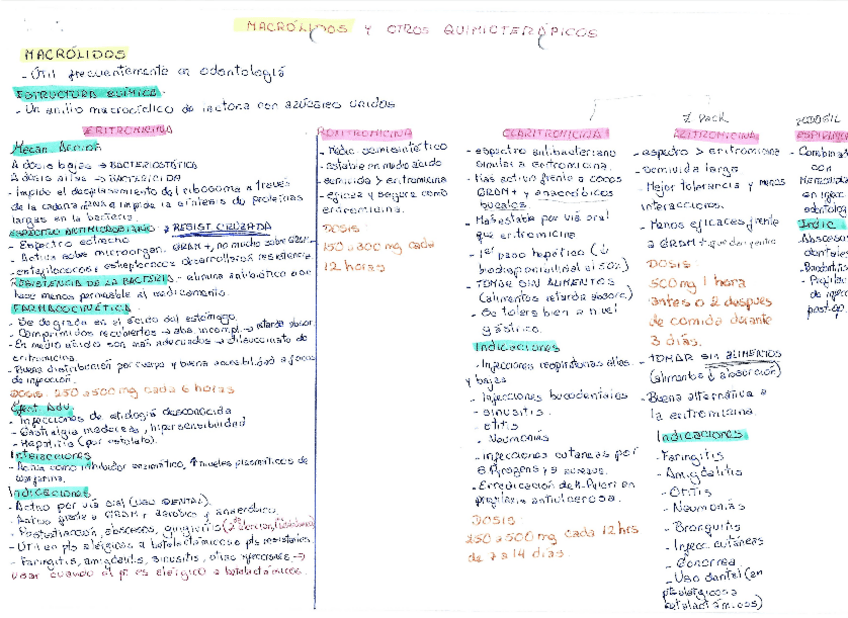 MACRÓLIDOS Y OTROS QUIMIOTERÁPICOS
MACRÓLIDOS
- Útil frecuentemente en odontología
ESTRUCTURA QUÍMICA.
- Un anillo macrocíclico de lactona con azúcares unidos
ERITROMICINA
Mecan. Acción
A dosis bajas → BACTERIOSTÁTICA
A dosis altas → BACTERICIDA
- Impide el desplazamiento del ribosoma a través
de la cadena e impide la síntesis de proteínas
largas en la bacteria.
ESPECTRO ANTIMICROBIANO → RESIST CRUZADA
- Espectro estrecho
- Activa sobre microorgan. GRAM+, no mucho sobre GRAM-
- estafilococos y estreptococos desarrollaron resistencia
RESISTENCIA DE LA BACTERIA: elimina antibiótico o se
hace menos permeable al medicamento.
FARMACOCINÉTICA
- Se degrada en el ácido del estómago.
- Comprimidos recubiertos → abs. incompl. → retarda absor.
- En medio ácido son más adecuados →
eritromicina.
- Buena distribución por cuerpo y buena accesibilidad a focos
de infección.
DOSIS: 250 a 500 mg cada 6 horas
Efect. Adv.
- Infecciones de etiología desconocida
- Gastralgia, hipersensibilidad
- Hepatitis (por estolato).
Interacciones
- Actúa como inhibidor enzimático, ↑ niveles plasmáticos de
warfarina.
Indicaciones
- Activo por vía oral (USO DENTAL).
- Activo frente a GRAM+ aerobico y anaeróbico
- abscesos, gingivitis
- Útil en pts alérgicos a betalactámicos o pts resistentes.
- Faringitis, amigdalitis, sinusitis, otras infecciones →
usar cuando el pt es alérgico a betalactámicos.
ROXITROMICINA
- Medio semisintético
- estable en medio ácido
- semivida > eritromicina
- eficaz y segura como
eritromicina.
DOSIS
150 a 300 mg cada
12 horas
CLARITROMICINA
- espectro antibacteriano
similar a eritromicina.
- Más activo frente a cocos
GRAM+ y anaeróbicos
bucales.
- Más estable por vía oral
que eritromicina
- 1er paso hepático (↓
biodisponibilidad al 50%)
- TOMAR SIN ALIMENTOS
(alimentos retarda absorc.)
- Se tolera bien a nivel
gástrico.
Indicaciones
- Infecciones respiratorias altas
y bajas
- Infecciones bucodentales
- sinusitis.
- otitis
- Neumonías
- infecciones cutáneas por
S. Pyogens y S. aureus.
- Erradicación de H. Pylori en
antiulcerosa.
DOSIS
250 a 500 mg cada 12 hrs
de 7 a 14 días.
Z PACK
AZITROMICINA
- espectro > eritromicina
- Semivida larga
- Mejor tolerancia y menos
interacciones.
- Menos eficaces frente
a GRAM+
DOSIS
500 mg 1 hora
antes o 2 después
de comida durante
3 días.
- TOMAR SIN ALIMENTOS
(alimentos ↓ absorción)
- Buena alternativa a
la eritromicina.
Indicaciones
- Faringitis
- Amigdalitis
- Otitis
- Neumonías
- Bronquitis
- Infecc. cutáneas
- Gonorrea
- Uso dental (en
pts alérgicos a
betalactámicos)
- Combina
con
Indic
- Abscesos
dentales
postop.